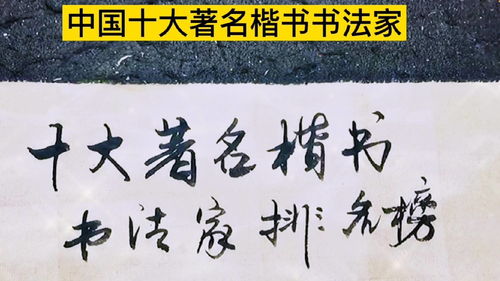 中国十大著名楷书书法家
十大著名楷书
书法家排名榜